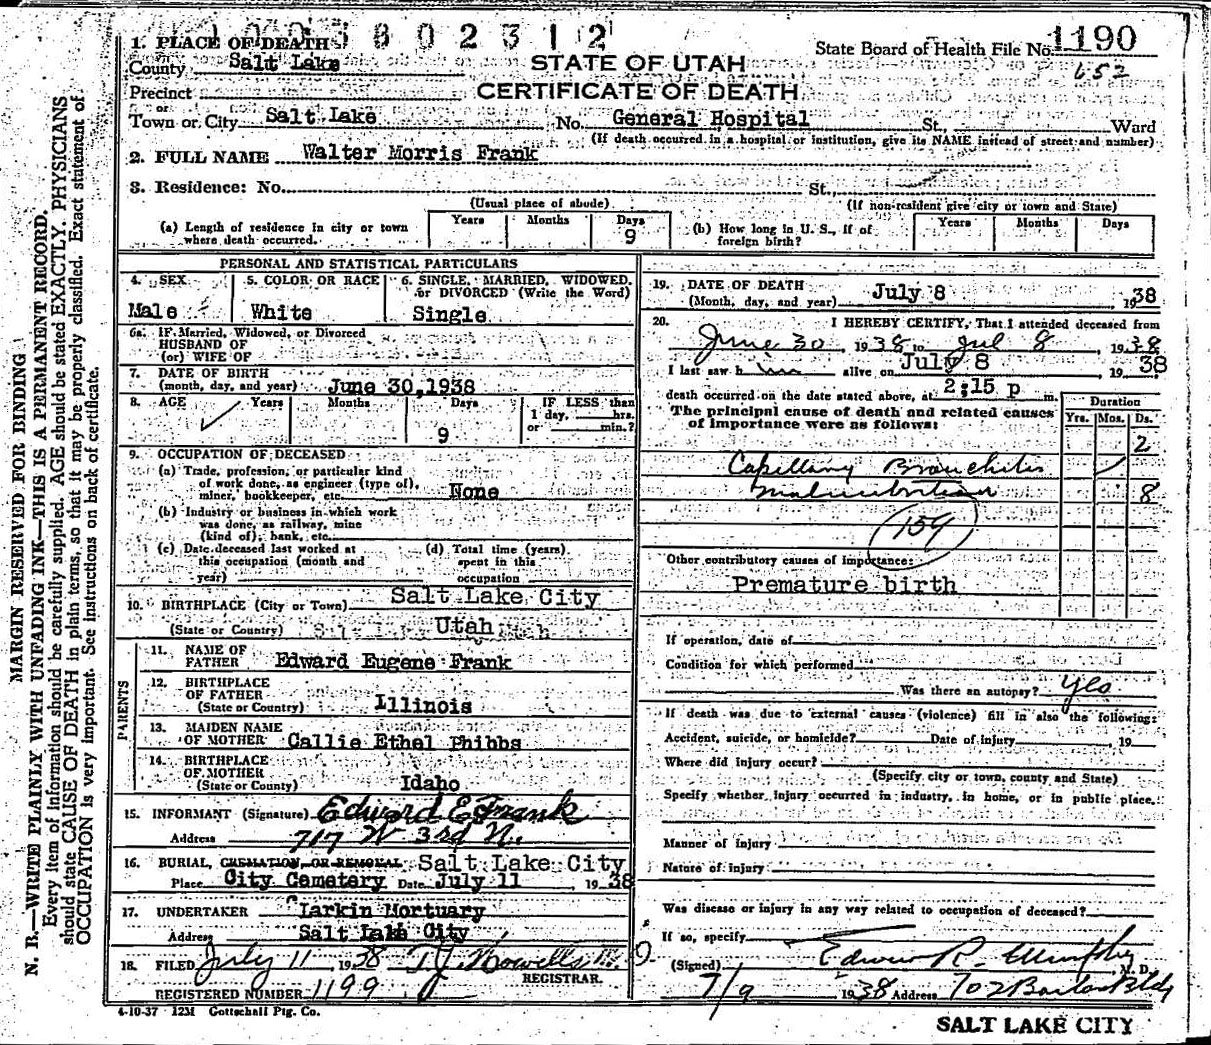 1938602312
1. PLACE OF DEATH
County Salt Lake
Precinct
or
Town or City Salt Lake
STATE OF UTAH
CERTIFICATE OF DEATH
State Board of Health File No. 1190
652
No. General Hospital St. Ward
(If death occurred in a hospital or institution, give its NAME instead of street and number)
2. FULL NAME Walter Morris Frank
3. Residence: No. St.,
(Usual place of abode)
(If non-resident give city or town and State)
(a) Length of residence in city or town where death occurred.
Years Months Days
9
(b) How long in U. S., if of foreign birth?
Years Months Days
PERSONAL AND STATISTICAL PARTICULARS
4. SEX
Male
5. COLOR OR RACE
White
6. SINGLE, MARRIED, WIDOWED, or DIVORCED (Write the Word)
Single
6a. If Married, Widowed, or Divorced
HUSBAND OF
(or) WIFE OF
7. DATE OF BIRTH
(month, day, and year) June 30, 1938
8. AGE Years Months Days
9
IF LESS than
1 day, hrs.
or min.?
9. OCCUPATION OF DECEASED
(a) Trade, profession, or particular kind
of work done, as engineer (type of),
miner, bookkeeper, etc. None
(b) Industry or business in which work
was done, as railway, mine
(kind of), bank, etc.
(c) Date deceased last worked at
this occupation (month and
year)
(d) Total time (years)
spent in this
occupation
10. BIRTHPLACE (City or Town) Salt Lake City
(State or Country) Utah
PARENTS
11. NAME OF
FATHER Edward Eugene Frank
12. BIRTHPLACE
OF FATHER
(State or Country) Illinois
13. MAIDEN NAME
OF MOTHER Callie Ethel Phibbs
14. BIRTHPLACE
OF MOTHER
(State or County) Idaho
15. INFORMANT (Signature) Edward E Frank
Address 717 W 3rd N.
16. BURIAL, CREMATION, OR REMOVAL Salt Lake City
Place City Cemetery Date July 11, 1938
17. UNDERTAKER Larkin Mortuary
Address Salt Lake City
18. FILED July 11 1938 T J Howells M. D.
REGISTRAR.
REGISTERED NUMBER 1199
4-10-37 12M Gottschall Ptg. Co.
19. DATE OF DEATH
(Month, day, and year) July 8 1938
20. I HEREBY CERTIFY, That I attended deceased from
June 30, 1938 to Jul 8, 1938
I last saw him alive on July 8, 1938
death occurred on the date stated above, at 2:15 p m.
The principal cause of death and related causes
of importance were as follows:
Duration
Yrs. Mos. Ds.
2
Capillary Bronchitis
Malnutrition 8
159
Other contributory causes of importance:
Premature birth
If operation, date of
Condition for which performed
Was there an autopsy? yes
If death was due to external causes (violence) fill in also the following:
Accident, suicide, or homicide? Date of injury, 19
Where did injury occur?
(Specify city or town, county and State)
Specify whether injury occurred in industry, in home, or in public place.
Manner of injury
Nature of injury
Was disease or injury in any way related to occupation of deceased?
If so, specify
(Signed) Edwin R. Murphy, M. D.
7/9 1938 Address 702 Bldg
SALT LAKE CITY
MARGIN RESERVED FOR BINDING
N. B.—WRITE PLAINLY WITH UNFADING INK—THIS IS A PERMANENT RECORD.
Every item of information should be carefully supplied. AGE should be stated EXACTLY. PHYSICIANS
should state CAUSE OF DEATH in plain terms, so that it may be properly classified. Exact statement of
OCCUPATION is very important. See instructions on back of certificate.